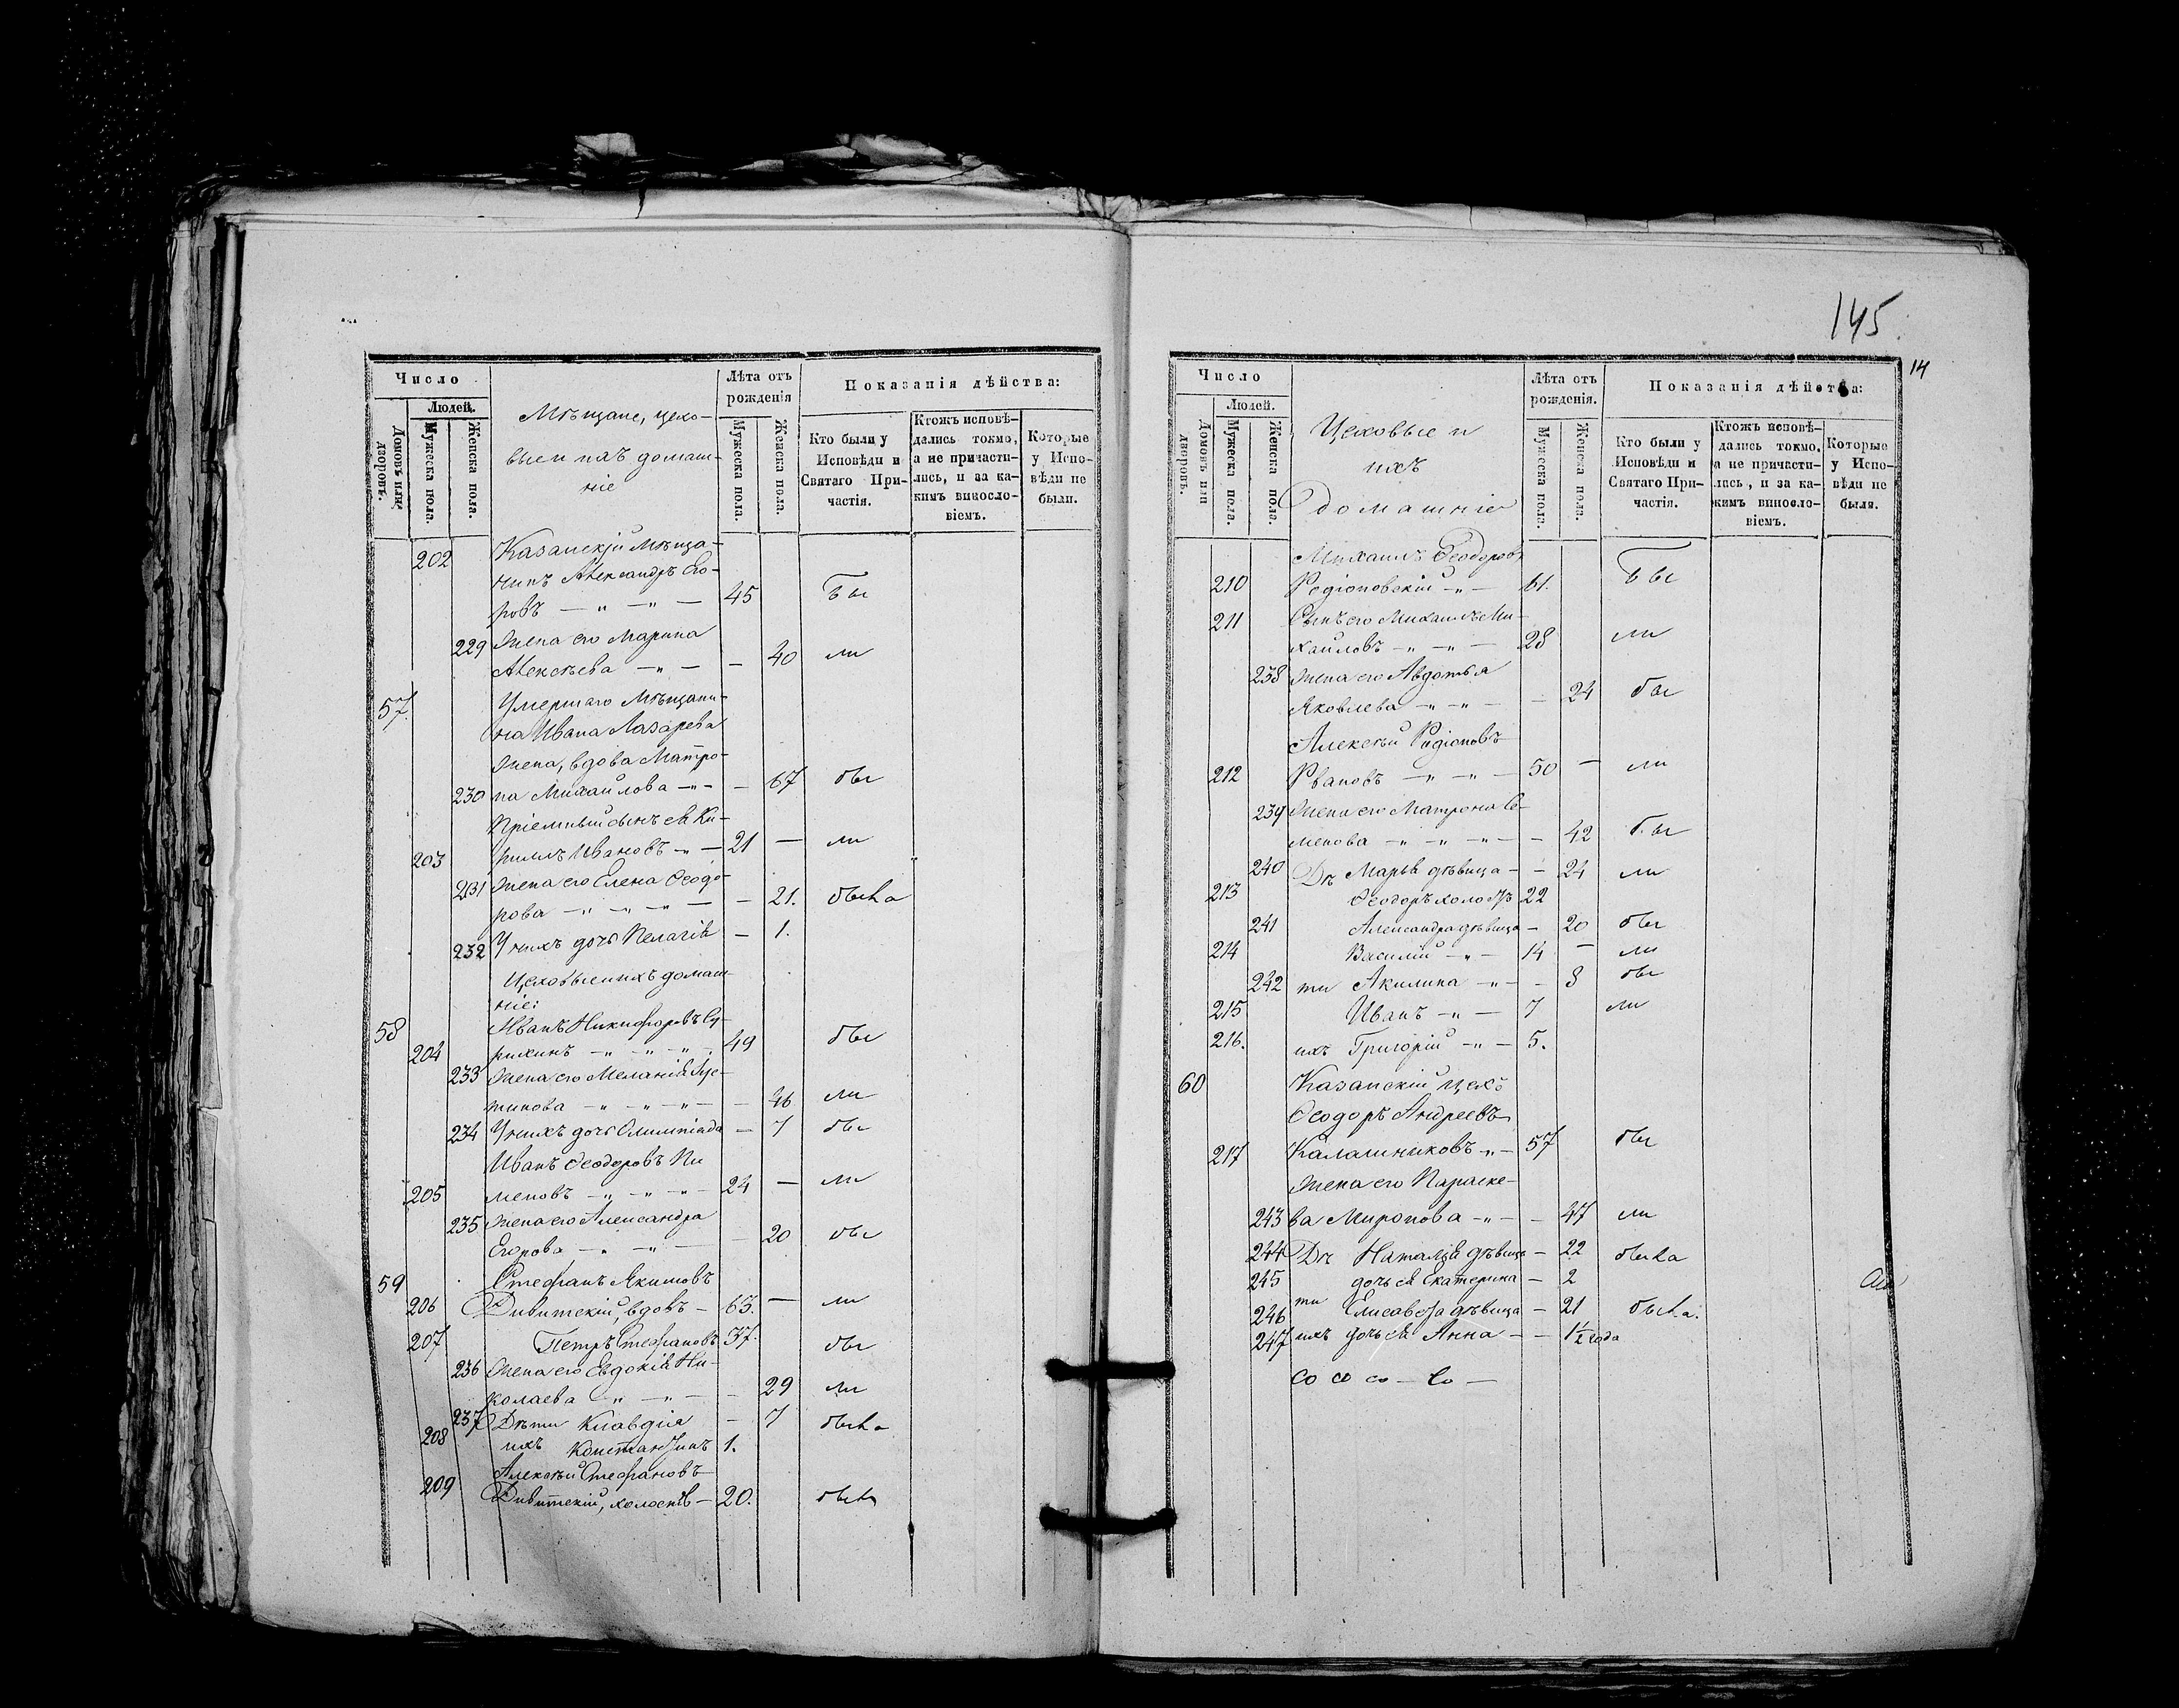 145
14
Число
Людей.
Домовъ или дворовъ.
Мужеска пола.
Женска пола.
Мѣщане, цехо-
вые и ихъ домаш-
ніе
Лѣта отъ
рожденія
Мужеска пола.
Женска пола.
Показанія дѣйства:
Кто были у
Исповѣди и
Святаго При-
частія.
Ктожъ исповѣ-
дались токмо,
а не причасти-
лись, и за ка-
кимъ винословіемъ.
Которые
у Испо-
вѣди не
были.
202 Казанскій мѣща-
нинъ Александръ Его-
ровъ — „ — „ — 45 Бы
229 Жена его Марина
Алексѣева — „ — — 40 ли
57. Умершаго мѣщани-
на Ивана Лазарева
жена, вдова Матро-
230 на Михайлова — „ — — 67 бы
Пріемный сынъ ея Ки-
203 риллъ Ивановъ — „ — 21 — ли
231 Жена его Елена Ѳеодо-
рова — „ — „ — „ — — 21. была
232 У нихъ дочь Пелагія — 1.
Цеховые и ихъ домаш-
ніе:
58 Иванъ Никифоровъ
204 — „ — „ — „ 49 бы
233 Жена его Меланія Іус-
тинова — „ — „ — „ — — 46 ли
234 У нихъ дочь Олимпіада — 7 бы
Иванъ Ѳеодоровъ Пи
205 меновъ — „ — „ — „ — 24 — ли
235 Жена его Александра
Егорова — „ — „ — 20 бы
59 Стефанъ Якимовъ
206 вдовъ — 63. — ли
207 Петръ Стефановъ 37. бы
236 Жена его Евдокія Ни-
колаева — „ — „ — — 29 ли
237 Дѣти Клавдія — 7 была
208 ихъ Константинъ 1.
Алексѣй Стефановъ
209 холостъ — 20. былъ
Число
Людей.
Домовъ или дворовъ.
Мужеска пола.
Женска пола.
Цеховые и
ихъ
домашніе
Лѣта отъ
рожденія.
Мужеска пола.
Женска пола.
Показанія дѣйства:
Кто были у
Исповѣди и
Святаго При-
частія.
Ктожъ исповѣ-
дались токмо,
а не причасти-
лись, и за ка-
кимъ винословіемъ.
Которые
у Испо-
вѣди не
были.
Михаилъ Ѳеодоровъ
210 Родіоновскій — „ — 61. Бы
211 Сынъ его Михаилъ Ми-
хайловъ — „ — „ — 28 ли
238 Жена его Авдотья
Яковлева — „ — „ — — 24 бы
Алексѣй Родіоновъ
212 Рвановъ — „ — „ — 50 — ли
239 Жена его Матрона Се-
менова — „ — „ — „ — — 42 Бы
240 Дѣ Марья дѣвица — — 24 ли
213 Ѳеодоръ холостъ 22
241 Александра дѣвица — 20 бы
214 Василій — „ — 14 — ли
242 ти Акилина — „ — — 8 бы
215 Иванъ — „ — 7 ли
216. ихъ Григорій — „ — 5.
60 Казанскій цех.
Ѳеодоръ Андреевъ
217 Калашниковъ — „ — 57 бы
Жена его Параске-
243 ва Миронова — „ — — 47 ли
244 Дѣ Наталія дѣвица — 22 была
245 дочь ея Екатерина — 2
246 ти Елисавета дѣвица — 21 была.
247 ихъ дочь ея Анна — — 1½ года